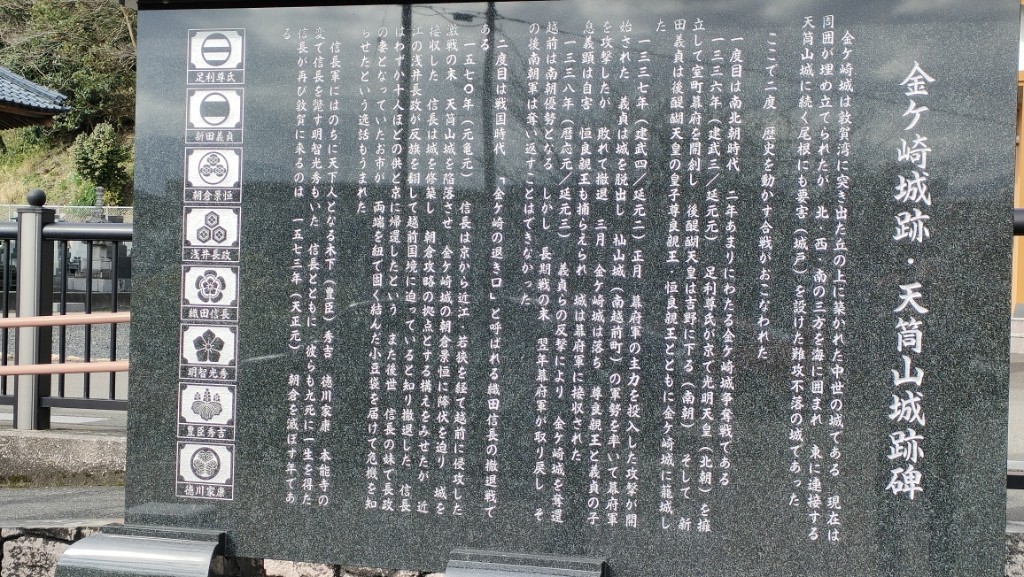 金ケ崎城跡・天筒山城跡碑
金ケ崎城は敦賀湾に突き出た丘の上に築かれた中世の城である 現在は
周囲が埋め立てられたが 北・西・南の三方を海に囲まれ 東に連接する
天筒山城に続く尾根にも要害(城戸)を設けた難攻不落の城であった
ここで二度 歴史を動かす合戦がおこなわれた
一度目は南北朝時代 二年あまりにわたる金ケ崎城争奪戦である
一三三六年(建武三/延元元) 足利尊氏が京で光明天皇(北朝)を擁
立して室町幕府を開創し 後醍醐天皇は吉野に下る(南朝) そして 新
田義貞は後醍醐天皇の皇子尊良親王・恒良親王とともに金ケ崎城に籠城し
た
一三三七年(建武四/延元二)正月 幕府軍の主力を投入した攻撃が開
始された 義貞は城を脱出し 杣山城(南越前町)の軍勢を率いて幕府軍
を攻撃したが 敗れて撤退 三月 金ケ崎城は落ち 尊良親王と義貞の子
息義顕は自害 恒良親王も捕らえられ 城は幕府軍に接収された
一三三八年(暦応元/延元三) 義貞らの反撃により 金ケ崎城を奪還
越前は南朝優勢となる しかし 長期戦の末 翌年幕府軍が取り戻し そ
の後南朝軍は奪い返すことはできなかった
二度目は戦国時代 「金ケ崎の退き口」と呼ばれる織田信長の撤退戦で
ある
一五七〇年(元亀元) 信長は京から近江・若狭を経て越前に侵攻した
激戦の末 天筒山城を陥落させ 金ケ崎城の朝倉景恒に降伏を迫り 城を
接収した 信長は城を修築し 朝倉攻略の拠点とする構えをみせたが 近
江の浅井長政が反旗を翻して越前国境に迫っていると知り撤退した 信長
はわずか十人ほどの供と京に帰還したという また後世 信長の妹で長政
の妻となっていたお市が 両端を紐で固く結んだ小豆袋を届けて危機を知
らせたという逸話もうまれた
信長軍にはのちに天下人となる木下(豊臣)秀吉 徳川家康 本能寺の
変で信長を襲す明智光秀もいた 信長とともに 彼らも九死に一生を得た
信長が再び敦賀に来るのは 一五七三年(天正元) 朝倉を滅ぼす年であ
る
足利尊氏
新田義貞
朝倉景恒
浅井長政
織田信長
明智光秀
豊臣秀吉
徳川家康